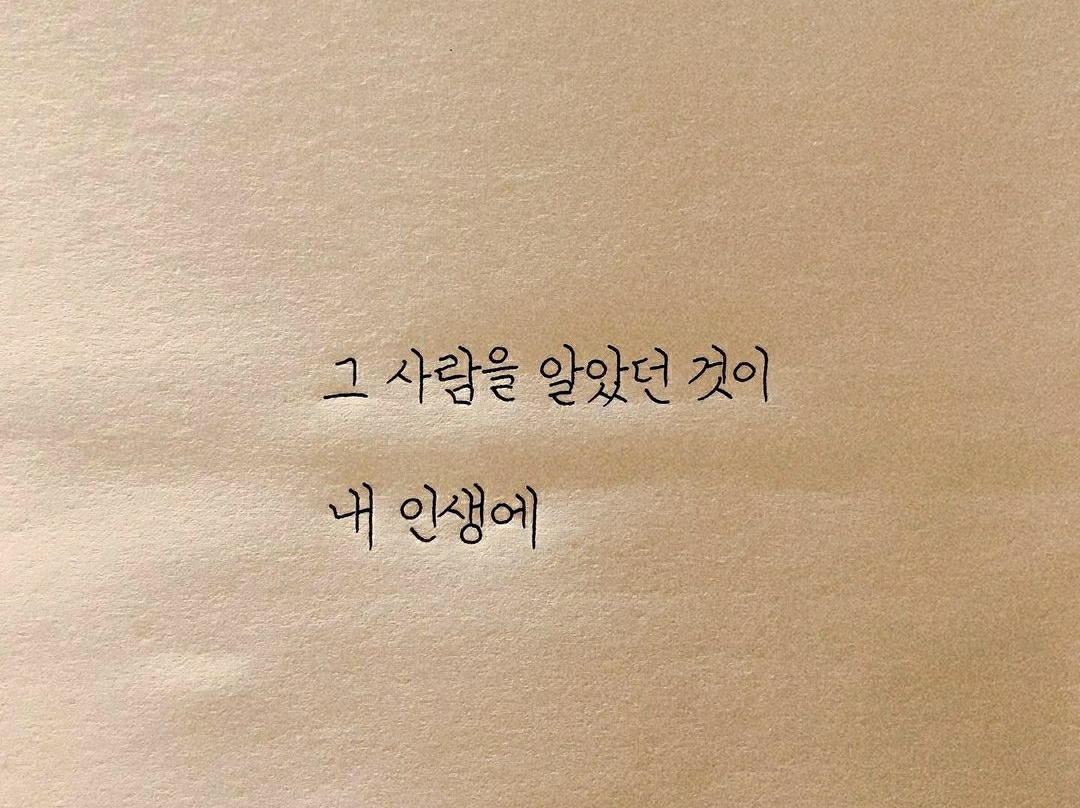 그 사람을 알았던 것이
내 인생에